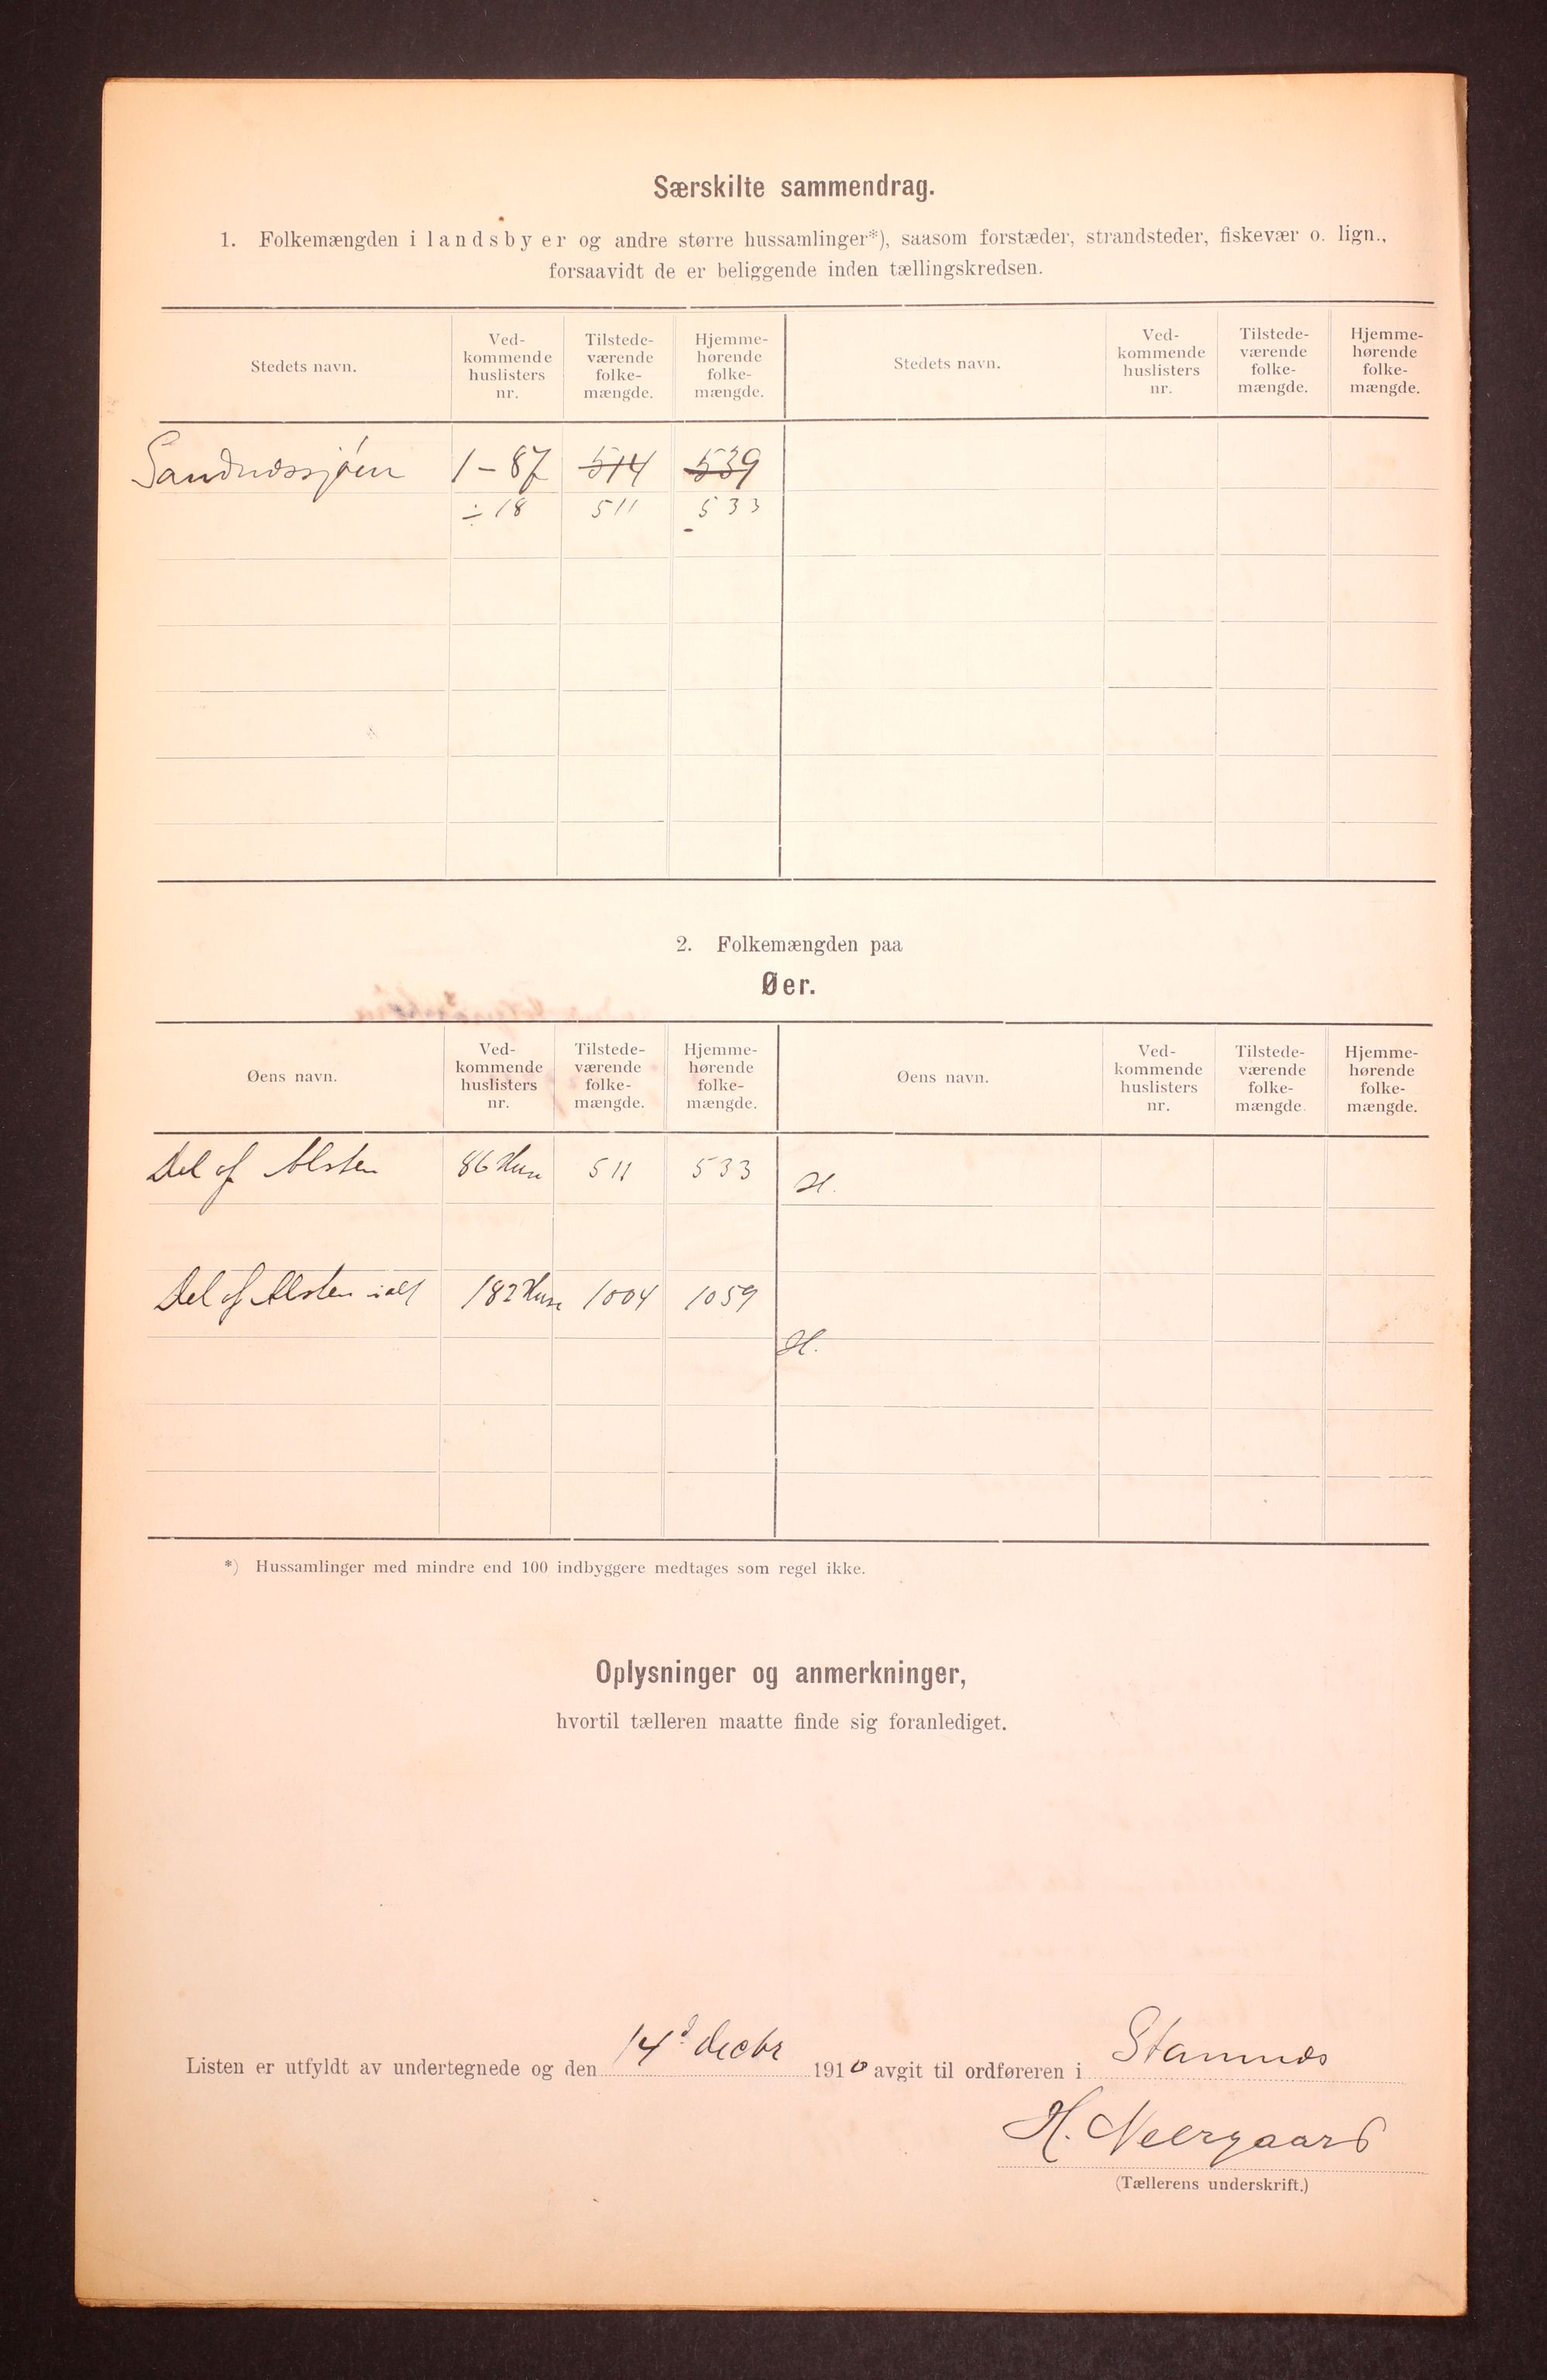 Særskilte sammendrag.
1. Folkemængden i landsbyer og andre større hussamlinger*), saasom forstæder, strandsteder, fiskevær o. lign.,
forsaavidt de er beliggende inden tællingskredsen.
Stedets navn. Ved-kommende huslisters nr. Tilstede-værende folke-mængde. Hjemme-hørende folke-mængde. Stedets navn. Ved-kommende huslisters nr. Tilstede-værende folke-mængde. Hjemme-hørende folke-mængde.
Sandnæssjöen 1-87 514 539
÷ 18 511 533
2. Folkemængden paa
Øer.
Øens navn. Ved-kommende huslisters nr. Tilstede-værende folke-mængde. Hjemme-hørende folke-mængde. Øens navn. Ved-kommende huslisters nr. Tilstede-værende folke-mængde Hjemme-hørende folke-mængde.
Del af Alsten 86 Huse 511 533 H.
Del af Alsten ialt 182 Huse 1004 1059
H.
*) Hussamlinger med mindre end 100 indbyggere medtages som regel ikke.
Oplysninger og anmerkninger,
hvortil tælleren maatte finde sig foranlediget.
Listen er utfyldt av undertegnede og den 14d decbr 1910 avgit til ordføreren i Stamnæs
H. Neergaard
(Tællerens underskrift.)